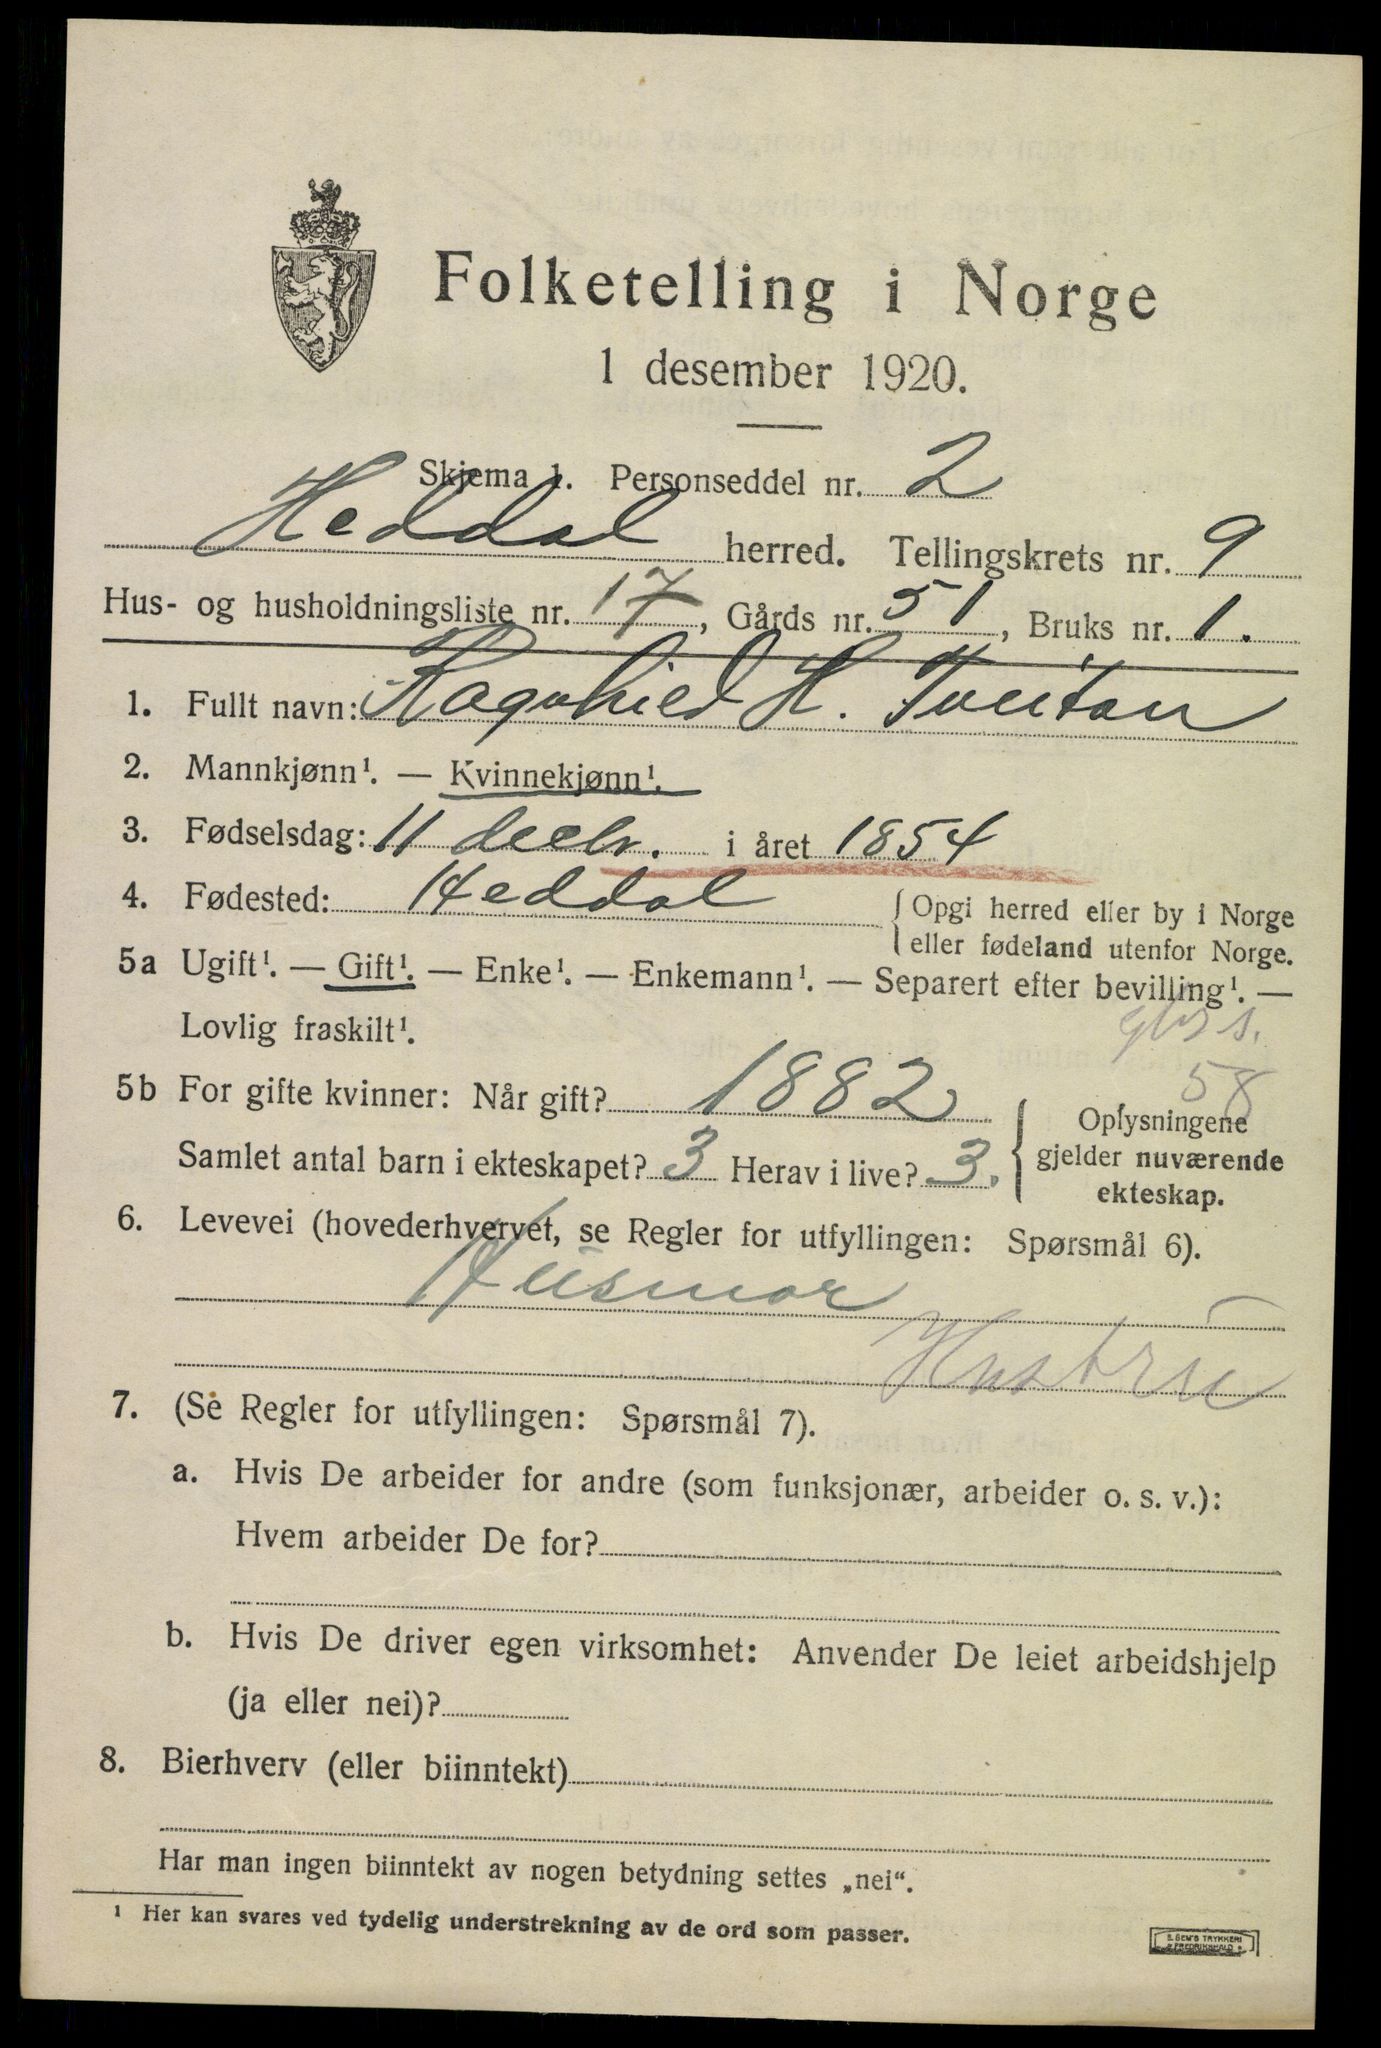 Folketelling i Norge
1 desember 1920.
Skjema 1. Personseddel nr. 2
Heddal herred. Tellingskrets nr. 9
Hus- og husholdningsliste nr. 17, Gårds nr. 51, Bruks nr. 1.
1. Fullt navn: Ragnhild H. Tveitan
2. Mannkjønn¹. — Kvinnekjønn¹.
3. Fødselsdag: 11 decbr. i året 1854
4. Fødested: Heddal { Opgi herred eller by i Norge
eller fødeland utenfor Norge.
5a Ugift¹. — Gift¹. — Enke¹. — Enkemann¹. — Separert efter bevilling¹. —
Lovlig fraskilt¹.
58
5b For gifte kvinner: Når gift? 1882 { Oplysningene
Samlet antal barn i ekteskapet? 3 Herav i live? 3. gjelder nuværende
ekteskap.
6. Levevei (hovederhvervet, se Regler for utfyllingen: Spørsmål 6).
Husmor
Hustru
7. (Se Regler for utfyllingen: Spørsmål 7).
a. Hvis De arbeider for andre (som funksjonær, arbeider o. s. v.):
Hvem arbeider De for?
b. Hvis De driver egen virksomhet: Anvender De leiet arbeidshjelp
(ja eller nei)?
8. Bierhverv (eller biinntekt)
Har man ingen biinntekt av nogen betydning settes „nei“.
¹ Her kan svares ved tydelig understrekning av de ord som passer.
E. SEM'S TRYKKERI
FREDRIKSHALD